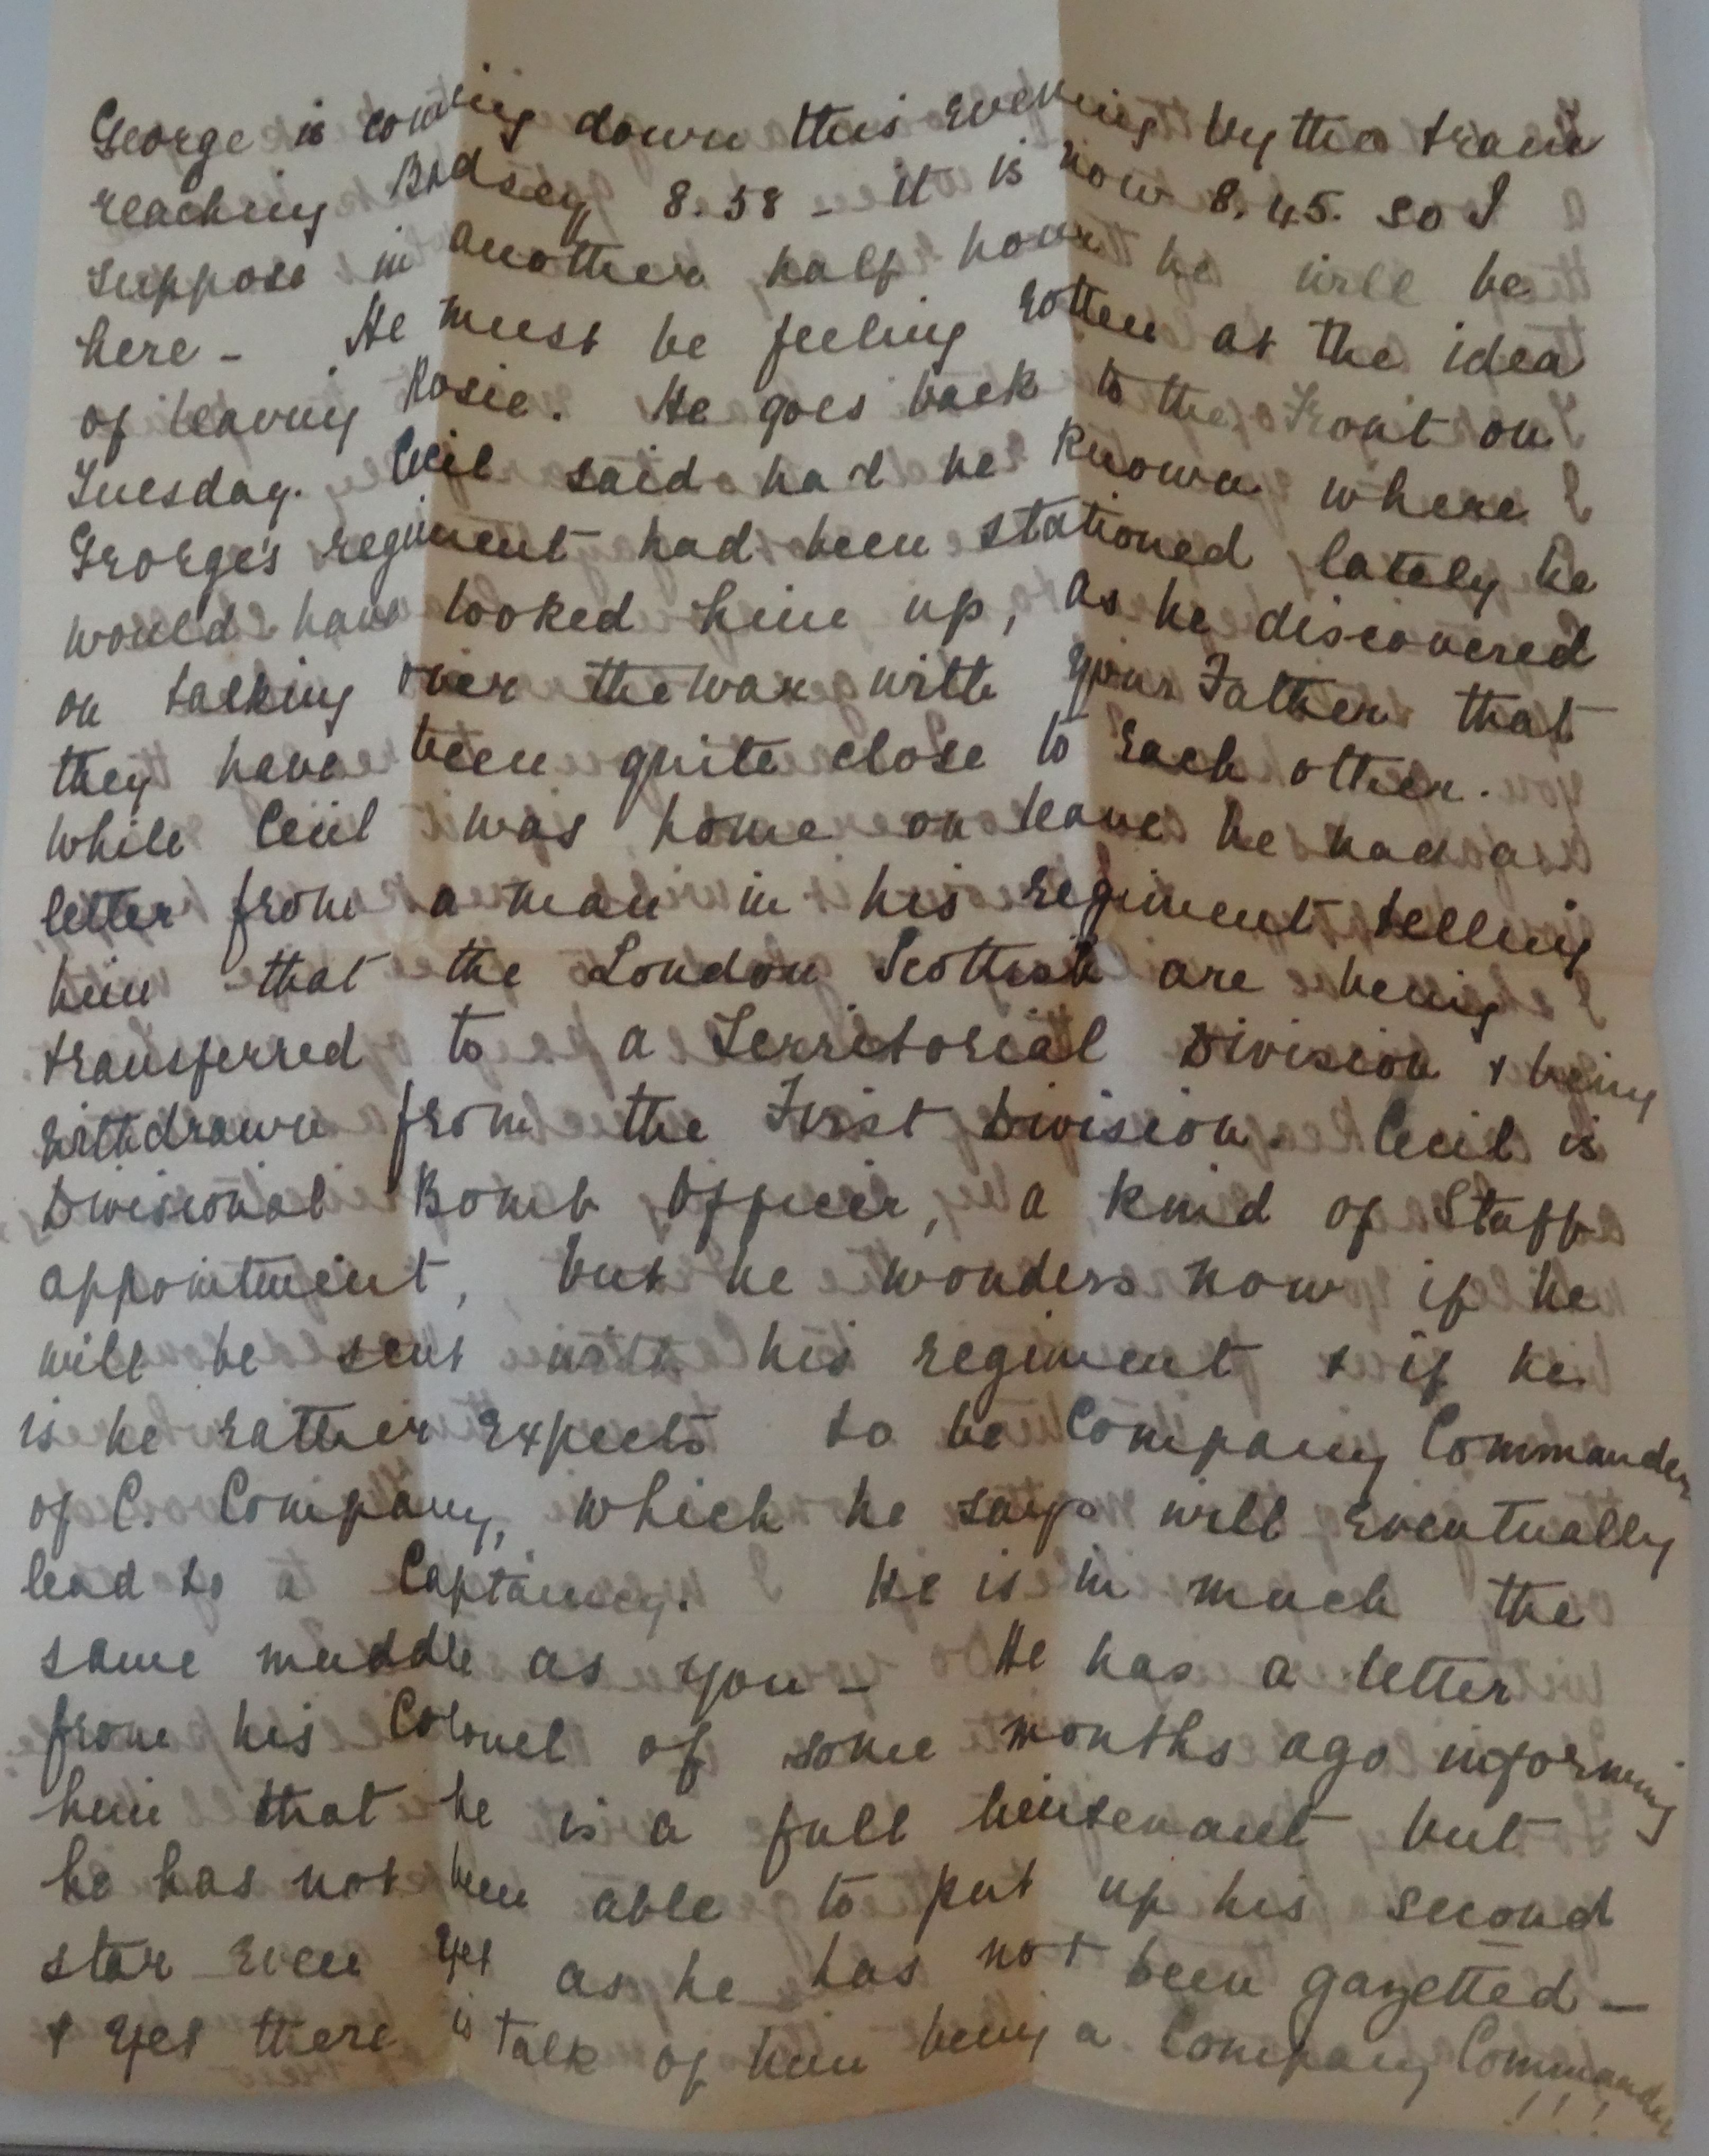 George is coming down this evening by the train
reaching Badsey 8.58 - it is now 8.45. so I
suppose in another half hour he will be
here - He must be feeling rotten at the idea
of leaving Rosie. He goes back to the Front on
Tuesday. Cecil said had he known where
George's regiment had been stationed lately he
would have looked him up, as he discovered
on talking over the war with your Father that
they have been quite close to each other.
While Cecil was home on leave he had a
letter from a man in his regiment telling
him that the London Scottish are being
transferred to a Territorial Division & being
withdrawn from the First Division. Cecil is
Divisional Bomb Officer, a kind of Staff
appointment, but he wonders now if he
will be sent with his regiment & if he
is he rather expects to be Company Commander
of C. Company, which he says will eventually
lead to a Captaincy. He is in much the
same muddle as you - He has a letter
from his Colonel of some months ago informing
him that he is a full lieutenant but
he has not been able to put up his second
star even yet as he has not been gazetted -
& yet there is talk of him being a Company Commander
!!!